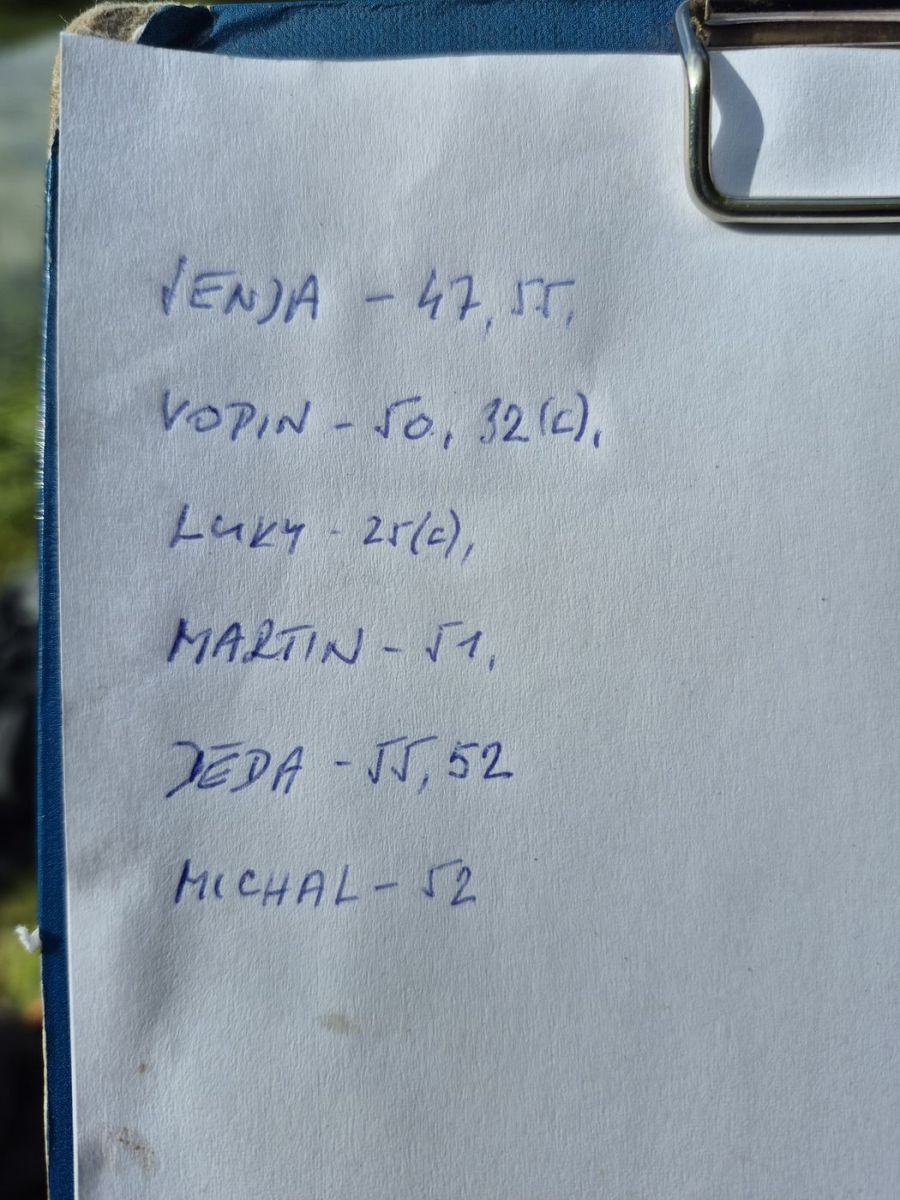 VENJA - 47, 55,
VOPIN - 50, 32(C),
LUKY - 25(C),
MARTIN - 51,
DĚDA - 55, 52
MICHAL - 52